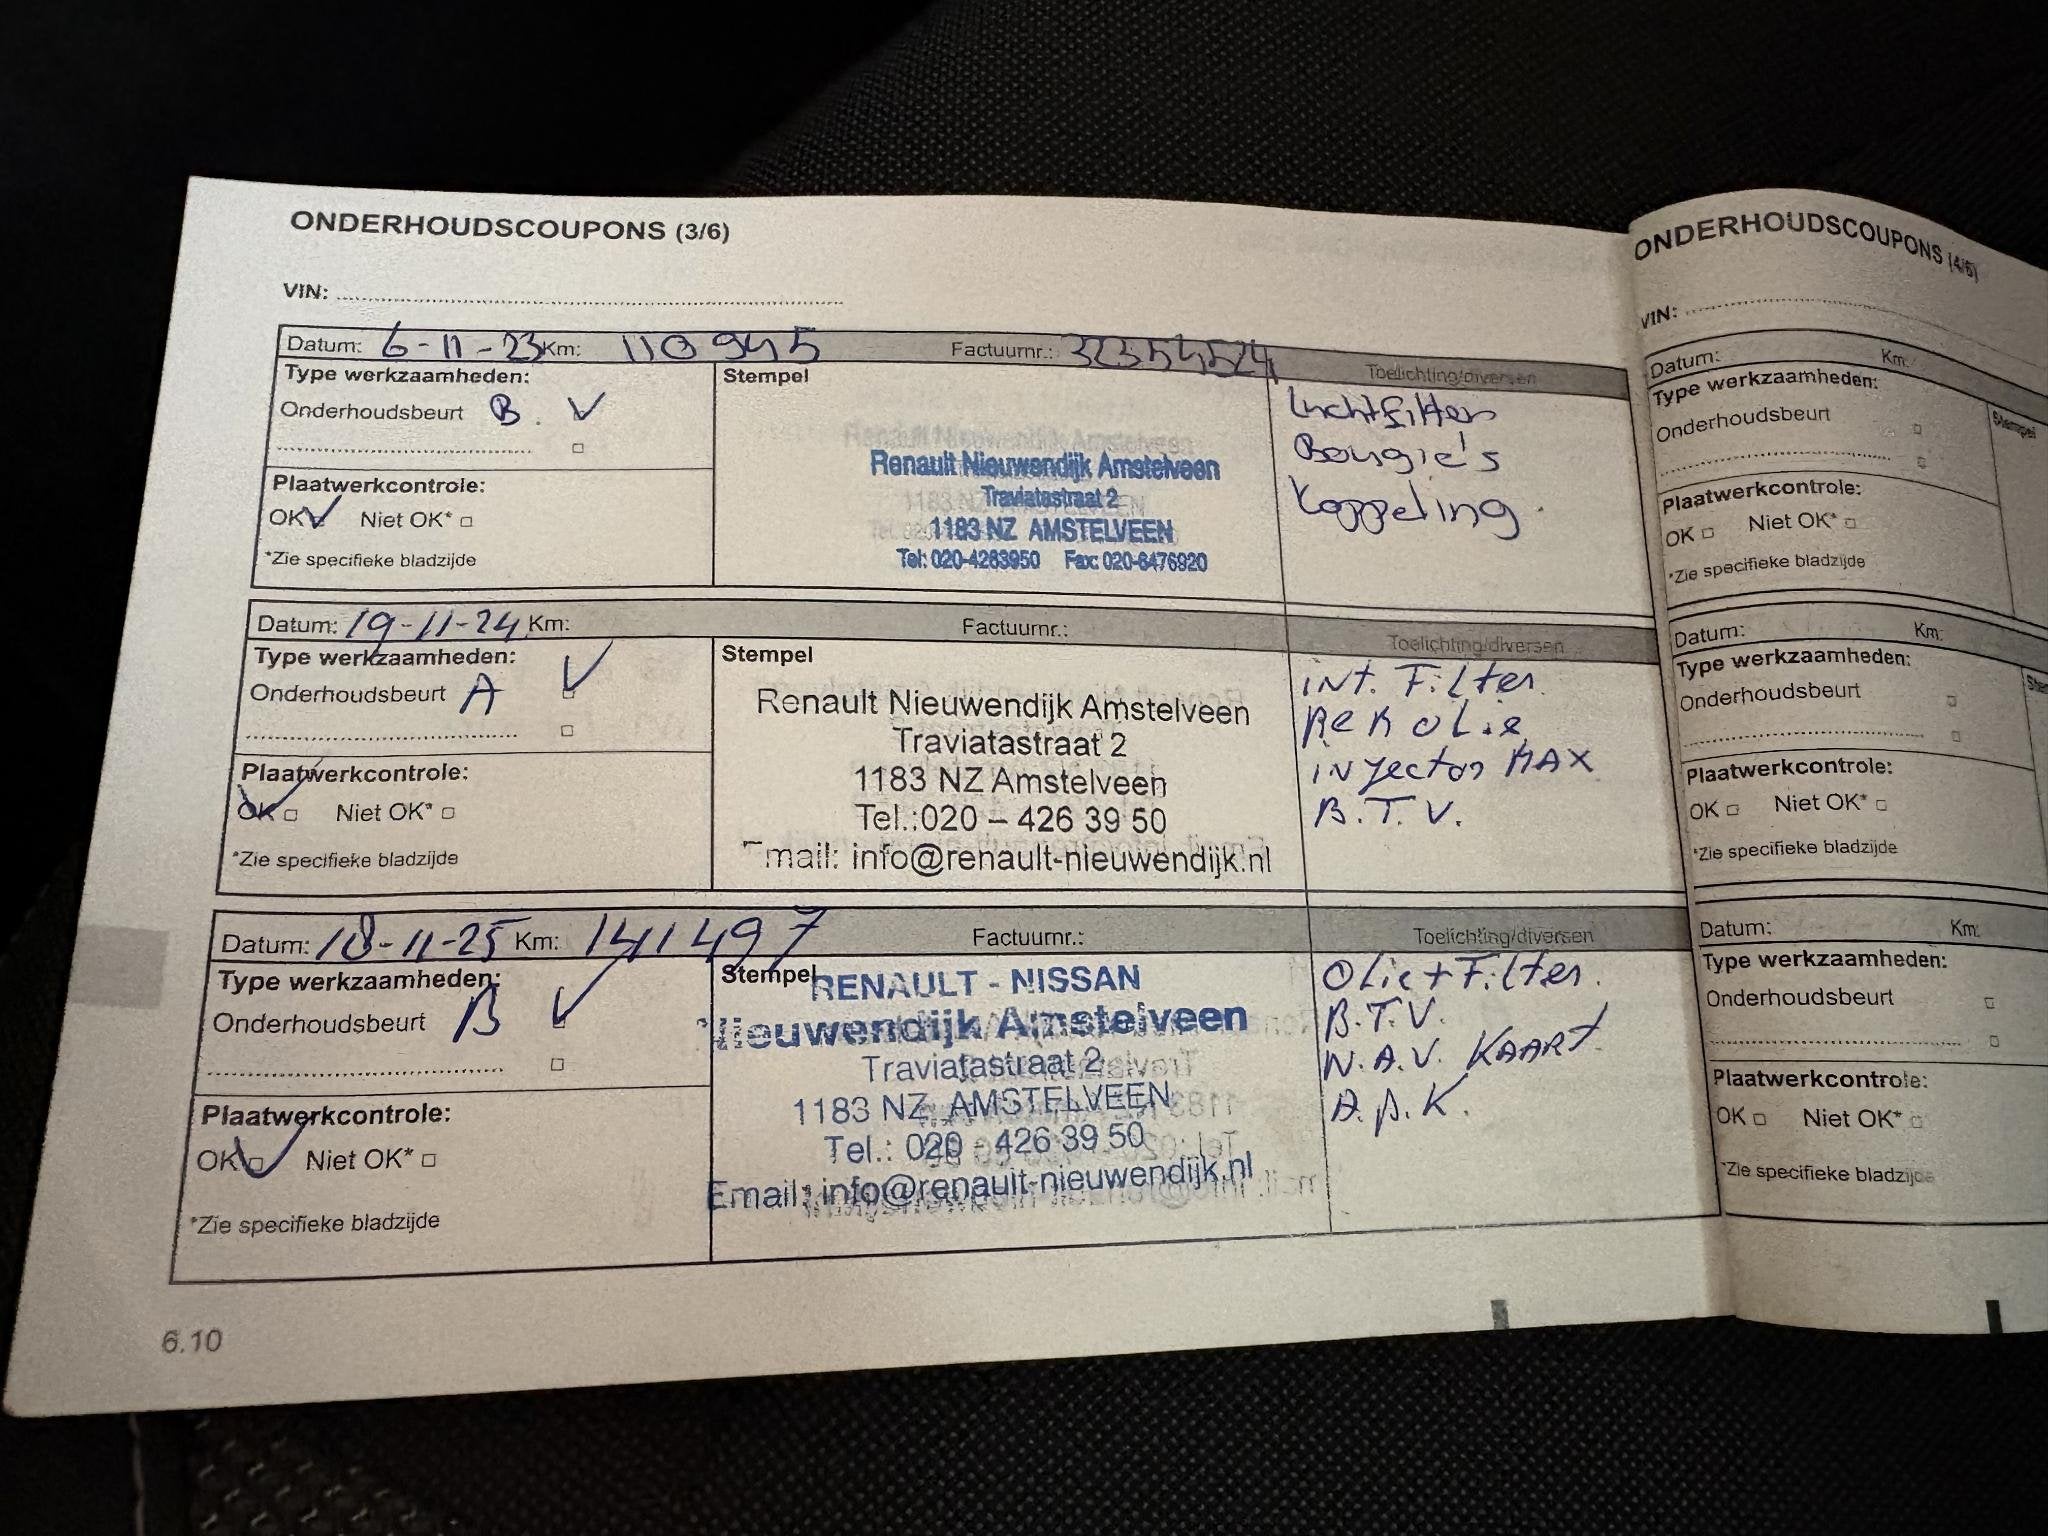 ONDERHOUDSCOUPONS (3/6)
VIN:
Datum: 6-11-23 Km: 110945 Factuurnr.: 32354524
Type werkzaamheden:
Stempel
Toelichting/diversen
Onderhoudsbeurt B.
Plaatwerkcontrole:
OK Niet OK*
*Zie specifieke bladzijde
Renault Nieuwendijk Amstelveen
Traviatastraat 2
1183 NZ AMSTELVEEN
Tel: 020-4263950 Fax: 020-6476920
Luchtfilter
Bougie's
Koppeling
Datum: 19-11-24 Km: Factuurnr.:
Type werkzaamheden:
Stempel
Toelichting/diversen
Onderhoudsbeurt A
Plaatwerkcontrole:
OK Niet OK*
*Zie specifieke bladzijde
Renault Nieuwendijk Amstelveen
Traviatastraat 2
1183 NZ Amstelveen
Tel.:020 – 426 39 50
Email: info@renault-nieuwendijk.nl
int. Filter
Rem olie
injector MAX
B.T.V.
Datum: 18-11-25 Km: 141497 Factuurnr.:
Type werkzaamheden:
Stempel
Toelichting/diversen
Onderhoudsbeurt B
Plaatwerkcontrole:
OK Niet OK*
*Zie specifieke bladzijde
RENAULT - NISSAN
Nieuwendijk Amstelveen
Traviatastraat 2
1183 NZ AMSTELVEEN
Tel.: 020 - 426 39 50
Email: info@renault-nieuwendijk.nl
Olie + Filter.
B.T.V.
N.A.V. KAART
A.P.K.
6.10
ONDERHOUDSCOUPONS (4/6)
VIN:
Datum: Km:
Type werkzaamheden:
Stempel
Onderhoudsbeurt
Plaatwerkcontrole:
OK Niet OK*
*Zie specifieke bladzijde
Datum: Km:
Type werkzaamheden:
Ste
Onderhoudsbeurt
Plaatwerkcontrole:
OK Niet OK*
*Zie specifieke bladzijde
Datum: Km:
Type werkzaamheden:
Onderhoudsbeurt
Plaatwerkcontrole:
OK Niet OK*
*Zie specifieke bladzijde